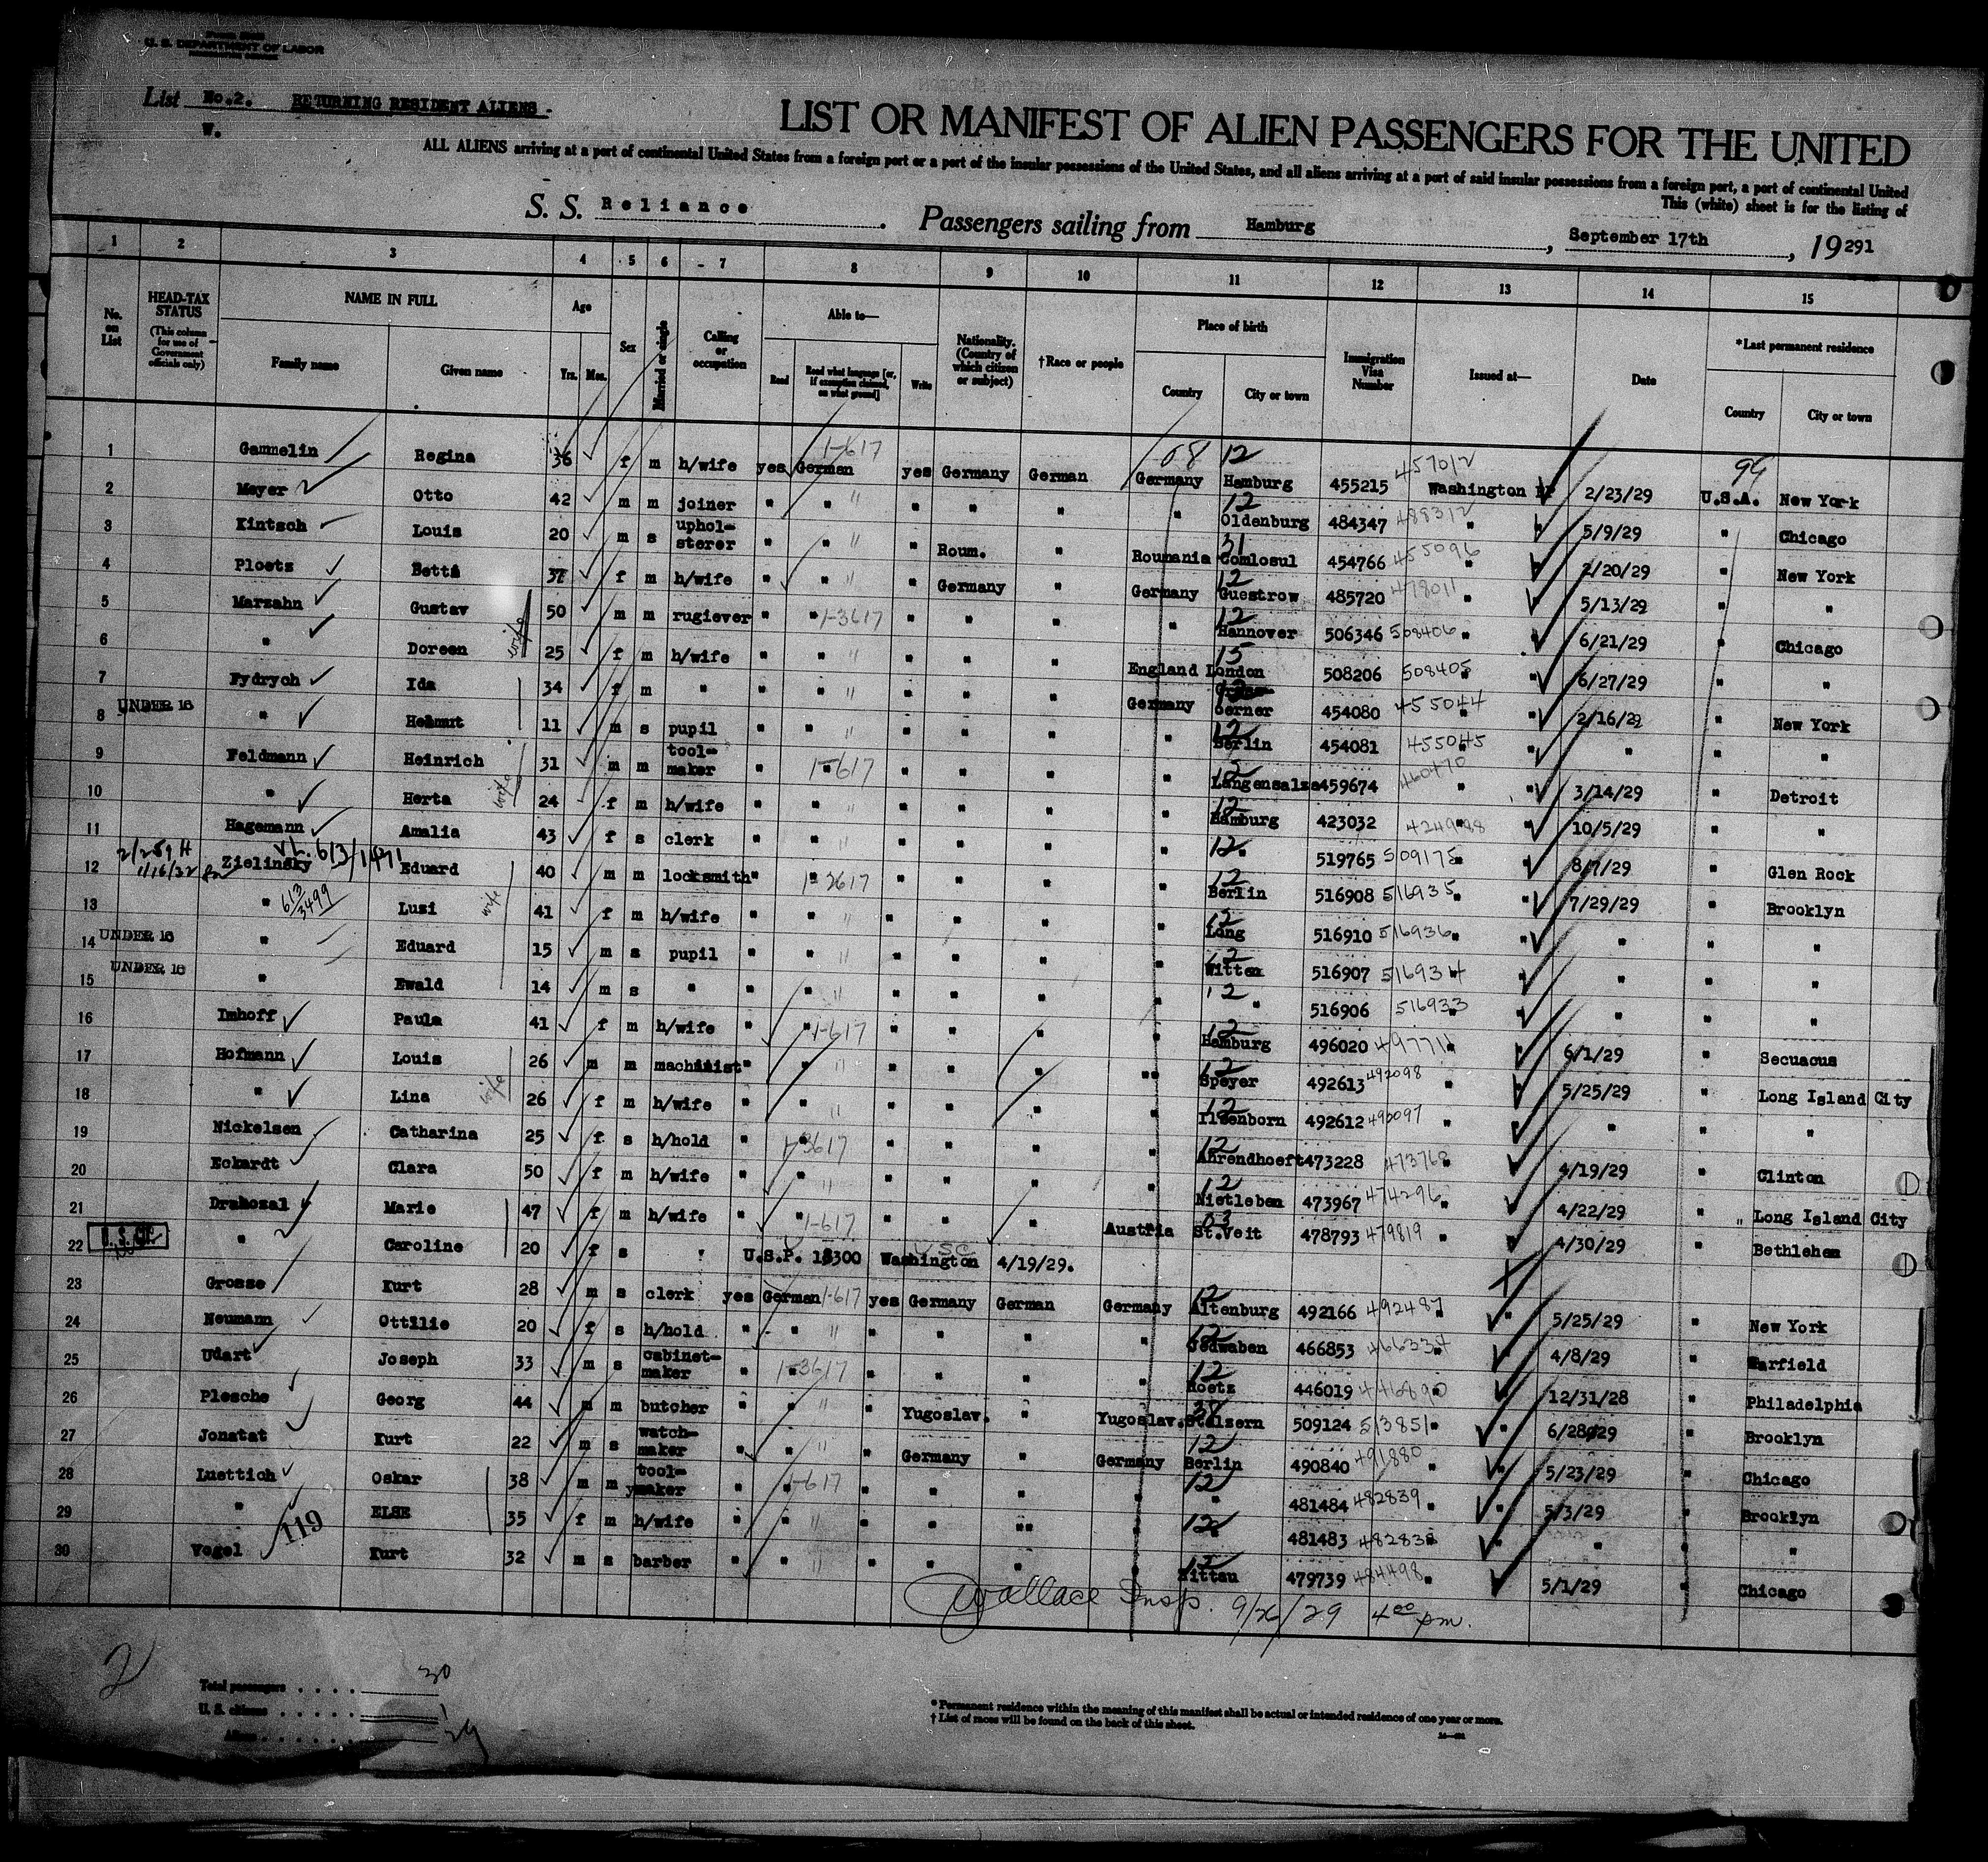 U. S. DEPARTMENT OF LABOR
List No.2. RETURNING RESIDENT ALIENS -
W.
LIST OR MANIFEST OF ALIEN PASSENGERS FOR THE UNITED
ALL ALIENS arriving at a port of continental United States from a foreign port or a port of the insular possessions of the United States, and all aliens arriving at a port of said insular possessions from a foreign port, a port of continental United
This (white) sheet is for the listing of
S. S. Reliance. Passengers sailing from Hamburg, September 17th, 19291
1 2 3 4 5 6 7 8 9 10 11 12 13 14 15
No. on List HEAD-TAX STATUS (This column for use of Government officials only) NAME IN FULL Family name Given name Age Yrs. Mos. Sex Married or single Calling or occupation Able to— Read Read what language [or, if exemption claimed, on what ground] Write Nationality. (Country of which citizen or subject) †Race or people Place of birth Country City or town Immigration Visa Number Issued at— Date *Last permanent residence Country City or town
1 Gammelin Regina 36 f m h/wife yes German 1-617 yes Germany German Germany 08 12 Hamburg 455215 457012 Washington 2/23/29 99 U.S.A. New York
2 Meyer Otto 42 m m joiner " " " " " " " 12 Oldenburg 484347 488312 " 5/9/29 " Chicago
3 Kintsch Louis 20 m s uphol-sterer " " " " Roum. " Roumania 31 Comlosul 454766 455096 " 2/20/29 " New York
4 Ploetz Betti 37 f m h/wife " " " " Germany " Germany 12 Guestrow 485720 478011 " 5/13/29 " "
5 Marzahn Gustav wife 50 m m rugiever " " 1-3617 " " " " 12 Hannover 506346 508406 " 6/21/29 " Chicago
6 " Doreen 25 f m h/wife " " " " " " England 15 London 508206 508405 " 6/27/29 " "
7 Fydrych Ida 34 f m " " " " " " " Germany Gerner 454080 455044 " 2/16/29 " New York
8 UNDER 16 " Helmut 11 m s pupil " " " " " " " 12 Berlin 454081 455045 " " " "
9 Feldmann Heinrich wife 31 m m tool-maker " " 1-617 " " " " 12 Langensalza 459674 460470 " 3/14/29 " Detroit
10 " Herta 24 f m h/wife " " " " " " " 12 Hamburg 423032 424988 " 10/5/29 " "
11 Hagemann Amalia 43 f s clerk " " " " " " " 12 " 519765 509175 " 8/7/29 " Glen Rock
12 1/16/32 Zielinsky Eduard wife 40 m m locksmith " " 1-3617 " " " " 12 Berlin 516908 516935 " 7/29/29 " Brooklyn
13 " 613/3499 Luzi 41 f m h/wife " " " " " " " 12 Long 516910 516936 " " " "
14 UNDER 16 " Eduard 15 m s pupil " " " " " " " 12 Witten 516907 516934 " " " "
15 UNDER 16 " Ewald 14 m s " " " " " " " " 12 " 516906 516933 " " " "
16 Imhoff Paula 41 f m h/wife " " 1-617 " " " " 12 Hamburg 496020 497711 " 6/1/29 " Secuacus
17 Hofmann Louis wife 26 m m machinist " " " " " " " 12 Speyer 492613 492098 " 5/25/29 " Long Island City
18 " Lina 26 f m h/wife " " " " " " " 12 Ilsenborn 492612 492097 " " " "
19 Nickelsen Catharina 25 f s h/hold " " 1-3617 " " " " 12 Ahrendhoeft 473228 473768 " 4/19/29 " Clinton
20 Eckardt Clara 50 f m h/wife " " " " " " " 12 Nietleben 473967 474296 " 4/22/29 " Long Island City
21 Drahozal Marie 47 f m h/wife " " 1-617 " " " Austria 03 St.Veit 478793 479819 " 4/30/29 " Bethlehem
22 U. S. Cit. " Caroline 20 f s " U.S.P. 18300 Washington USC 4/19/29.
23 Grosse Kurt 28 m s clerk yes German 1-617 yes Germany German Germany 12 Altenburg 492166 492487 " 5/25/29 " New York
24 Neumann Ottilie 20 f s h/hold " " " " " " " 12 Jedwaben 466853 466334 " 4/8/29 " Warfield
25 Udart Joseph 33 m s cabinet-maker " " 1-3617 " " " " 12 Roetz 446019 446890 " 12/31/28 " Philadelphia
26 Plesche Georg 44 m m butcher " " " " Yugoslav. " Yugoslav. 38 Stalzern 509124 513851 " 6/28/29 " Brooklyn
27 Jonatat Kurt 22 m s watch-maker " " " " Germany " Germany 12 Berlin 490840 491880 " 5/23/29 " Chicago
28 Luettich Oskar 38 m m tool-maker " " 1-617 " " " " 12 " 481484 482839 " 5/3/29 " Brooklyn
29 " ELSE 35 f m h/wife " " " " " " " 12 " 481483 482838 " " " "
30 Vogel 119 Kurt 32 m s barber " " " " " " " 12 Zittau 479739 484498 " 5/1/29 " Chicago
Wallace Insp. 9/26/29 4 00 pm.
2
Total passengers . . . . 30
U. S. citizens . . . . . 1
Aliens . . . . . . 29
* Permanent residence within the meaning of this manifest shall be actual or intended residence of one year or more.
† List of races will be found on the back of this sheet.